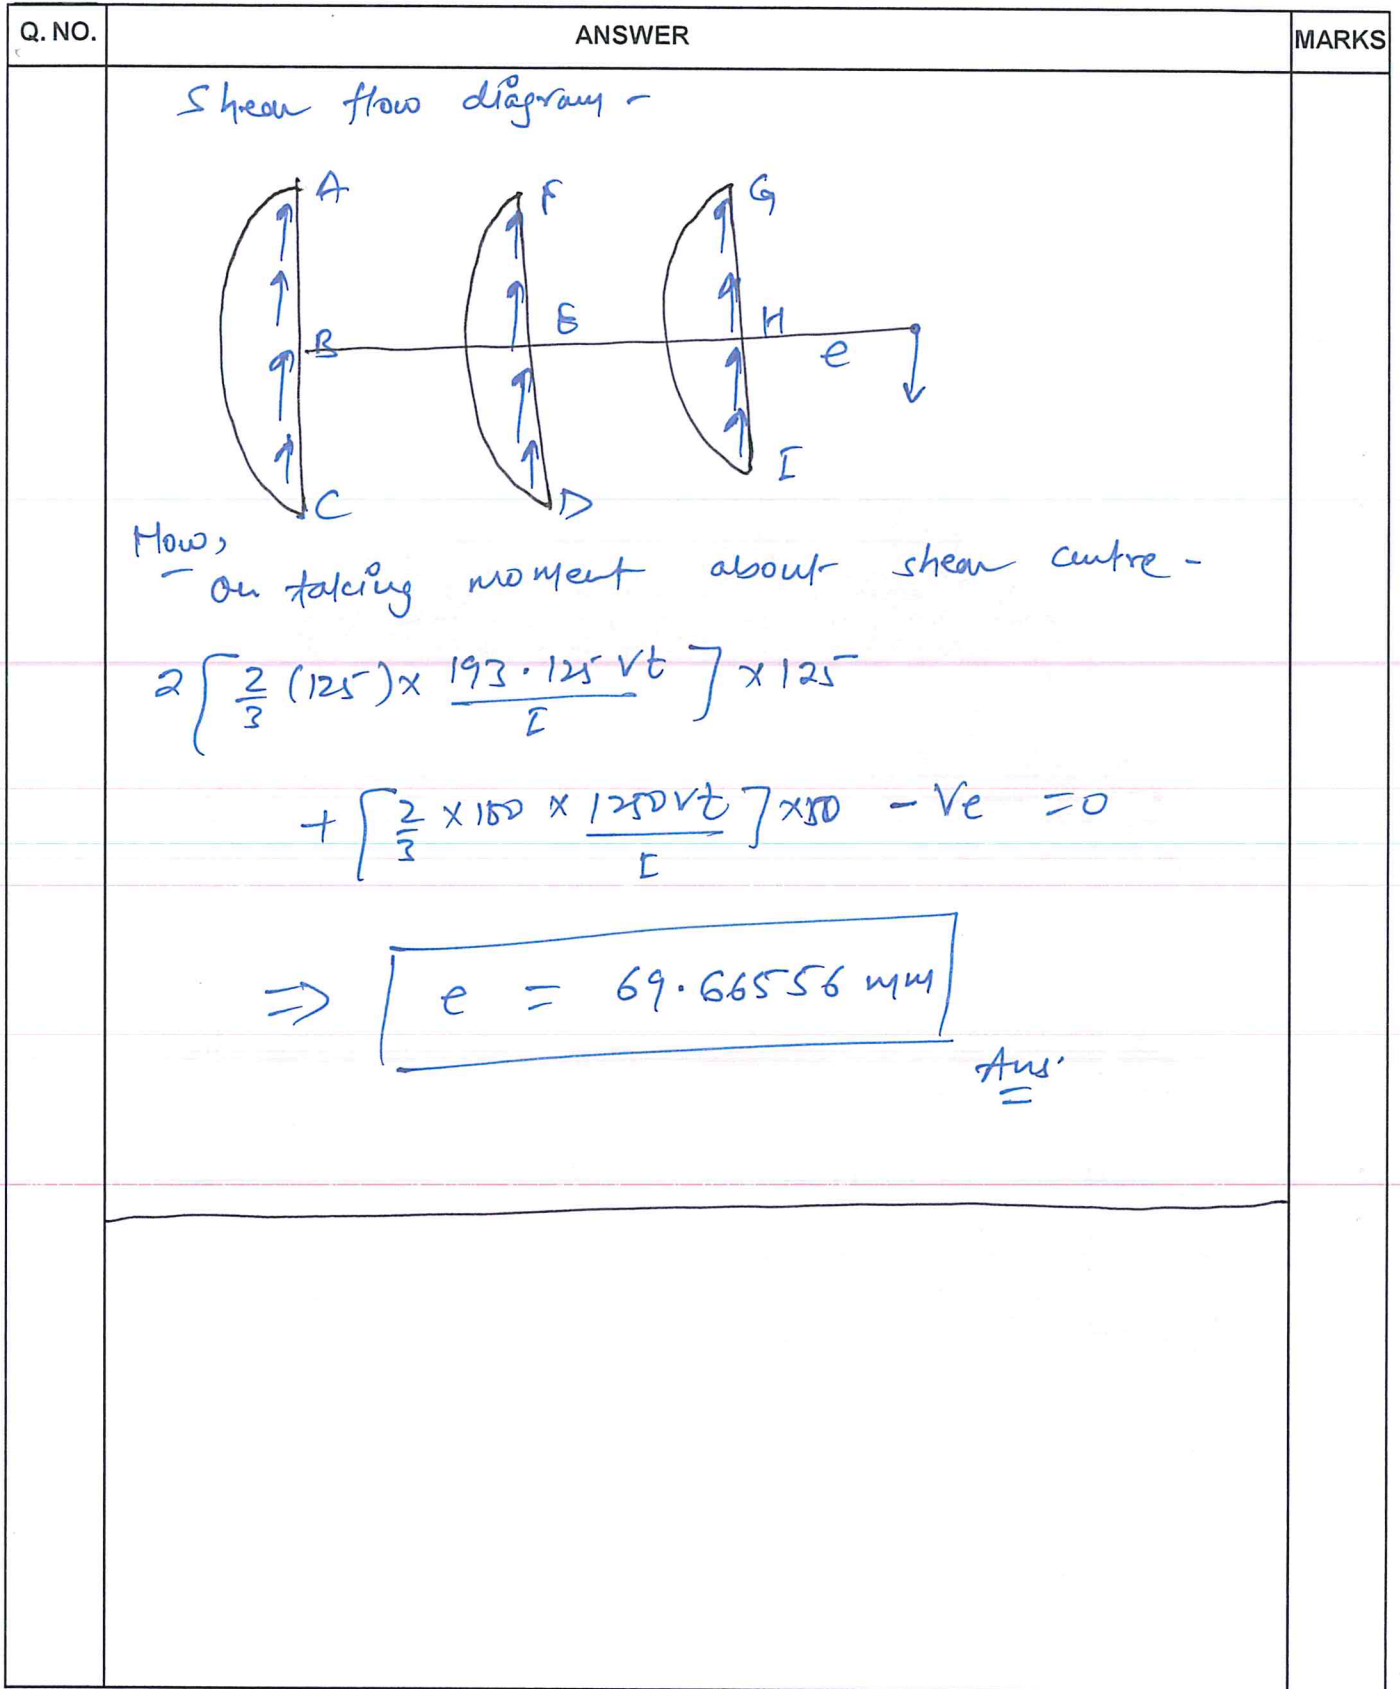 Q. NO. ANSWER MARKS
Shear flow diagram -
A F G
B E H e
C D I
Now,
on taking moment about shear centre -
2[2/3 (125) × 193.125 Vt/I] × 125
+ [2/3 × 100 × 1250Vt/I] × 50 - Ve = 0
⇒ e = 69.66556 mm
Ans.